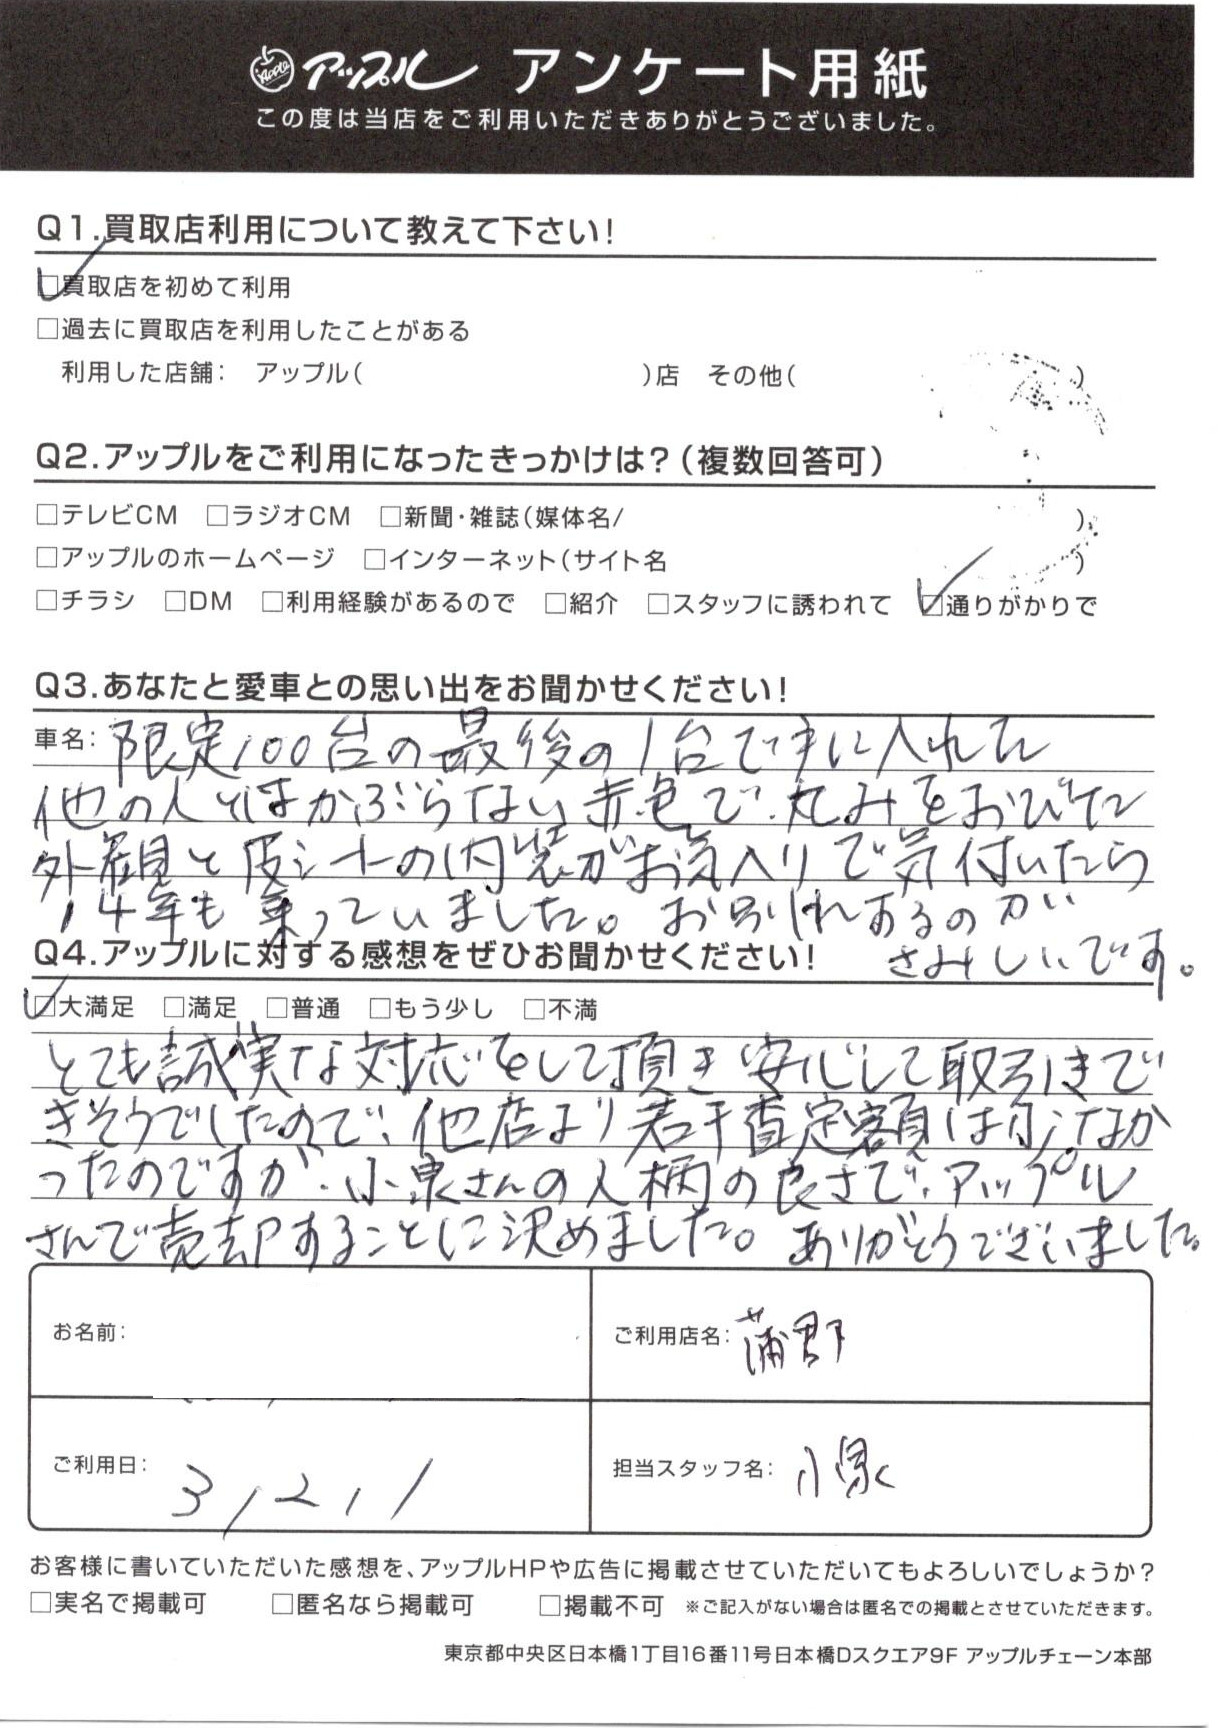 Apple アップル アンケート用紙
この度は当店をご利用いただきありがとうございました。
Q1.買取店利用について教えて下さい!
☑買取店を初めて利用
□過去に買取店を利用したことがある
利用した店舗: アップル( )店 その他( )
Q2.アップルをご利用になったきっかけは?(複数回答可)
□テレビCM □ラジオCM □新聞・雑誌(媒体名/ )
□アップルのホームページ □インターネット(サイト名 )
□チラシ □DM □利用経験があるので □紹介 □スタッフに誘われて ☑通りがかりで
Q3.あなたと愛車との思い出をお聞かせください!
車名: 限定100台の最後の1台で手に入れた
他の人とはかぶらない赤色で、丸みをおびた
外観と皮シートの内装がお気入りで気付いたら
14年も乗っていました。お別れするのが
さみしいです。
Q4.アップルに対する感想をぜひお聞かせください!
☑大満足 □満足 □普通 □もう少し □不満
とても誠実な対応をして頂き安心して取引きで
きそうでしたので、他店より若干査定額は少なか
ったのですが、小泉さんの人柄の良さで、アップル
さんで売却することに決めました。ありがとうございました。
お名前:
ご利用店名: 蒲郡
ご利用日: 3,2,1
担当スタッフ名: 小泉
お客様に書いていただいた感想を、アップルHPや広告に掲載させていただいてもよろしいでしょうか?
□実名で掲載可 □匿名なら掲載可 □掲載不可 ※ご記入がない場合は匿名での掲載とさせていただきます。
東京都中央区日本橋1丁目16番11号日本橋Dスクエア9F アップルチェーン本部